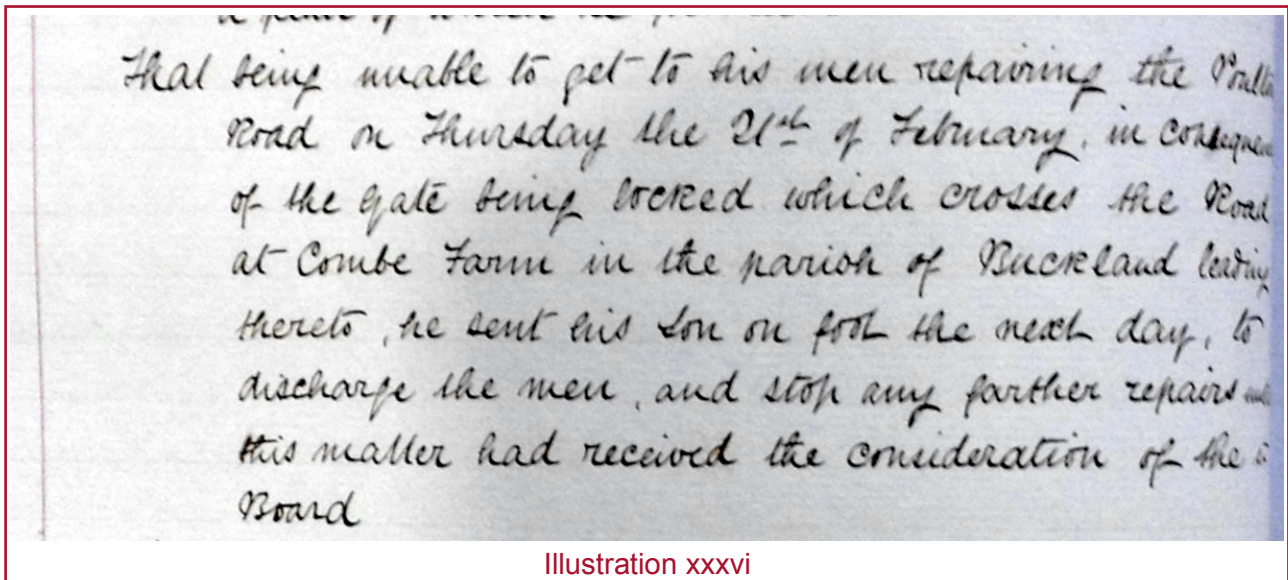 That being unable to get to his men repairing the
Road on Thursday the 21st of February, in consequence
of the Gate being locked which crosses the Road
at Combe Farm in the parish of Buckland leading
thereto, he sent his Son on foot the next day, to
discharge the men, and stop any farther repairs
this matter had received the consideration of the
Board
Illustration xxxvi